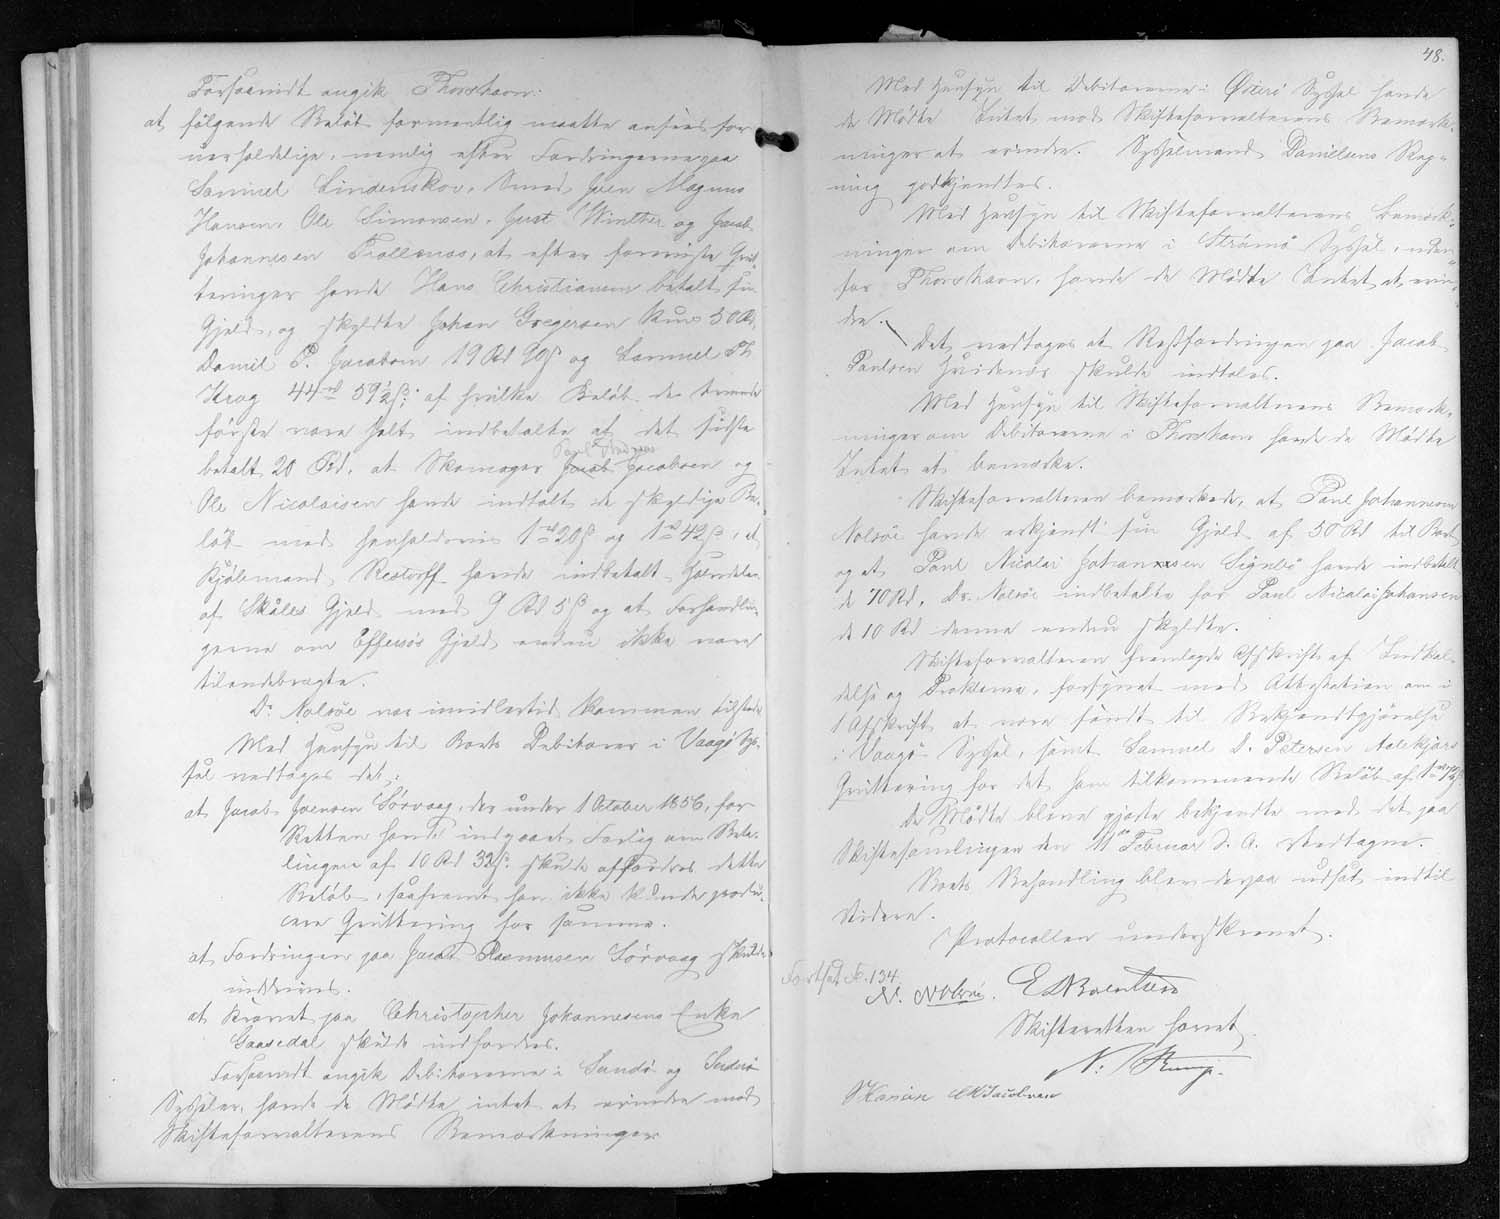 Forsaavidt angik Thorshavn:
at følgende Beløb formentlig maatte ansees for
uerholdelige, nemlig efter Fordringerne paa
Samuel Lindenskov, Smed Joen Magnus
Hansen, Ole Simonsen, Just Winther og Jacob
Johannesen Trollenæs, at efter forviiste Qvit-
teringer havde Hans Christiansen betalt sin
Gjeld, og skyldte Johan Gregersen kun 50 Rd,
Daniel P. Jacobsen 19 Rd 90 ß og Samuel Th.
Krog 44 rd 59½ ß; af hvilke Beløb de tvende
første vare helt indbetalte af det sidste
Poul Andreas
betalt 20 Rd, at Skomager Jacob Jacobsen og
Ole Nicolaisen havde indtalt de skyldige Be-
løb med henholdsvis 1 rd 20 ß og 1 rd 42 ß, at
Kjøbmand Restorff havde indbetalt Halvdelen
af Skåles Gjeld med 9 Rd 5 ß og at Forhandlin-
gerne om Effersøs Gjeld endnu ikke vare
tilendebragte.
Dr. Nolsöe var imidlertid kommen tilstede
Med Hensyn til Boets Debitorer i Vaagø Sys-
sel vedtoges det:
at Jacob Joensen Sørvaag, der under 1 October 1856, for
Retten havde indgaaet Forlig om Beta-
lingen af 10 Rd 32 ß skulde affordres dette
Beløb, saafremt han ikke kunde produ-
cere Qvittering for samme.
at Fordringen paa Jacob Rasmussen Sørvaag skulde
inddrives.
at Kravet paa Christopher Johannesens Enke
Gaasedal skulde indfordres.
Forsaavidt angik Debitorerne i Sandø og Suderø
Sysseler, havde de Mødte intet at erindre mod
Skifteforvalterens Bemærkninger
48.
Med Hensyn til Debitorerne i Østerø Syssel havde
de Mødte Intet mod Skifteforvalterens Bemærk-
ninger at erindre. Sysselmand Danielsens Reg-
ning godkjendtes.
Med Hensyn til Skifteforvalterens Bemærk-
ninger om Debitorerne i Strømø Syssel, uden-
for Thorshavn, havde de Mødte Intet at erin-
dre.
Det vedtoges at Restfordringen paa Jacob
Poulsen Hvidenæs skulde indtales.
Med Hensyn til Skifteforvalterens Bemærk-
ninger om Debitorerne i Thorshavn havde de Mødte
Intet at bemærke.
Skifteforvalteren bemærkede, at Poul Johannesen
Nolsöe havde erkjendt sin Gjeld af 50 Rd til Boet
og at Poul Nicolai Johannesen Signebø havde indbetalt
de 70 Rd. Dr. Nolsöe indbetalte for Poul Nicolai Johansen
de 10 Rd denne endnu skyldte.
Skifteforvalteren fremlagde Afskrift af Indkal-
delse og Proklama, forsynet med Attestation om i
1 Afskrift at være sendt til Bekjendtgjørelse
i Vaagø Syssel, samt Samuel D. Petersen Aalekjærs
Qvittering for det ham tilkommende Beløb af 1 rd 72 ß.
De Mødte bleve gjorte bekjendte med det paa
Skiftesamlingen den 11 de Februar d. A. Vedtagne.
Boets Behandling blev derpaa udsat indtil
Videre.
Protocollen underskrevet.
Fortsat Fo. 134.
N. Nolsöe. E. Boentsen
Skifteretten hævet.
N: Runge.
M. Hansen CM Jacobsen